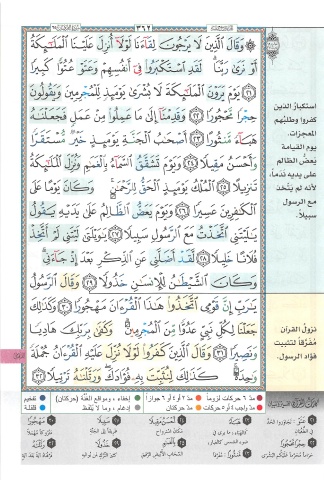 ٣٦٢
وَقَالَ الَّذِينَ لَا يَرْجُونَ لِقَاءَنَا لَوْلَا أُنزِلَ عَلَيْنَا الْمَلَائِكَةُ
أَوْ نَرَىٰ رَبَّنَا ۗ لَقَدِ اسْتَكْبَرُوا فِي أَنفُسِهِمْ وَعَتَوْ عُتُوًّا كَبِيرًا
٢١ يَوْمَ يَرَوْنَ الْمَلَائِكَةَ لَا بُشْرَىٰ يَوْمَئِذٍ لِّلْمُجْرِمِينَ وَيَقُولُونَ
حِجْرًا مَّحْجُورًا ٢٢ وَقَدِمْنَا إِلَىٰ مَا عَمِلُوا مِنْ عَمَلٍ فَجَعَلْنَاهُ
هَبَاءً مَّنثُورًا ٢٣ أَصْحَابُ الْجَنَّةِ يَوْمَئِذٍ خَيْرٌ مُّسْتَقَرًّا
وَأَحْسَنُ مَقِيلًا ٢٤ وَيَوْمَ تَشَقَّقُ السَّمَاءُ بِالْغَمَامِ وَنُزِّلَ الْمَلَائِكَةُ
تَنزِيلًا ٢٥ الْمُلْكُ يَوْمَئِذٍ الْحَقُّ لِلرَّحْمَٰنِ ۚ وَكَانَ يَوْمًا عَلَى
الْكَافِرِينَ عَسِيرًا ٢٦ وَيَوْمَ يَعَضُّ الظَّالِمُ عَلَىٰ يَدَيْهِ يَقُولُ
يَا لَيْتَنِي اتَّخَذْتُ مَعَ الرَّسُولِ سَبِيلًا ٢٧ يَا وَيْلَتَىٰ لَيْتَنِي لَمْ أَتَّخِذْ
فُلَانًا خَلِيلًا ٢٨ لَّقَدْ أَضَلَّنِي عَنِ الذِّكْرِ بَعْدَ إِذْ جَاءَنِي ۗ
وَكَانَ الشَّيْطَانُ لِلْإِنسَانِ خَذُولًا ٢٩ وَقَالَ الرَّسُولُ
يَا رَبِّ إِنَّ قَوْمِي اتَّخَذُوا هَٰذَا الْقُرْآنَ مَهْجُورًا ٣٠ وَكَذَٰلِكَ
جَعَلْنَا لِكُلِّ نَبِيٍّ عَدُوًّا مِّنَ الْمُجْرِمِينَ ۗ وَكَفَىٰ بِرَبِّكَ هَادِيًا
وَنَصِيرًا ٣١ وَقَالَ الَّذِينَ كَفَرُوا لَوْلَا نُزِّلَ عَلَيْهِ الْقُرْآنُ جُمْلَةً
وَاحِدَةً ۚ كَذَٰلِكَ لِنُثَبِّتَ بِهِ فُؤَادَكَ ۖ وَرَتَّلْنَاهُ تَرْتِيلًا ٣٢
استكبار الذين
كفروا وطلبهم
المعجزات.
يوم القيامة
يَعضُّ الظالم
على يديه ندماً،
لأنه لم يتَّخذ
مع الرسول
سبيلاً.
نزول القرآن
مُفَرَّقاً لتثبيت
فؤاد الرسول.
مدّ ٦ حركات لزوماً
مدّ ٢ أو ٤ أو ٦ جوازاً
إخفاء، ومواقع الغُنَّة (حركتان)
تفخيم
مدّ واجب ٤ أو ٥ حركات
مدّ حركتان
إدغام، وما لا يُلفَظ
قلقلة